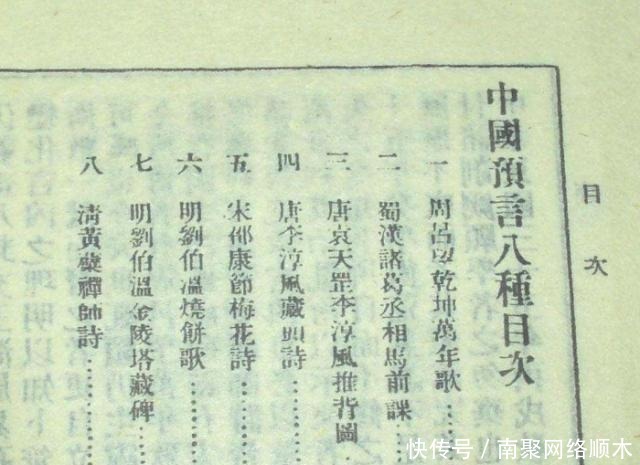 目次
中國預言八種目次
一 周呂望乾坤萬年歌……
二 蜀漢諸葛丞相馬前課……
三 唐袁天罡李淳風推背圖……
四 唐李淳風藏頭詩……
五 宋邵康節梅花詩……
六 明劉伯溫燒餅歌……
七 明劉伯溫金陵塔藏碑……
八 清黃蘗禪師詩……
快传号/南聚网络顺木